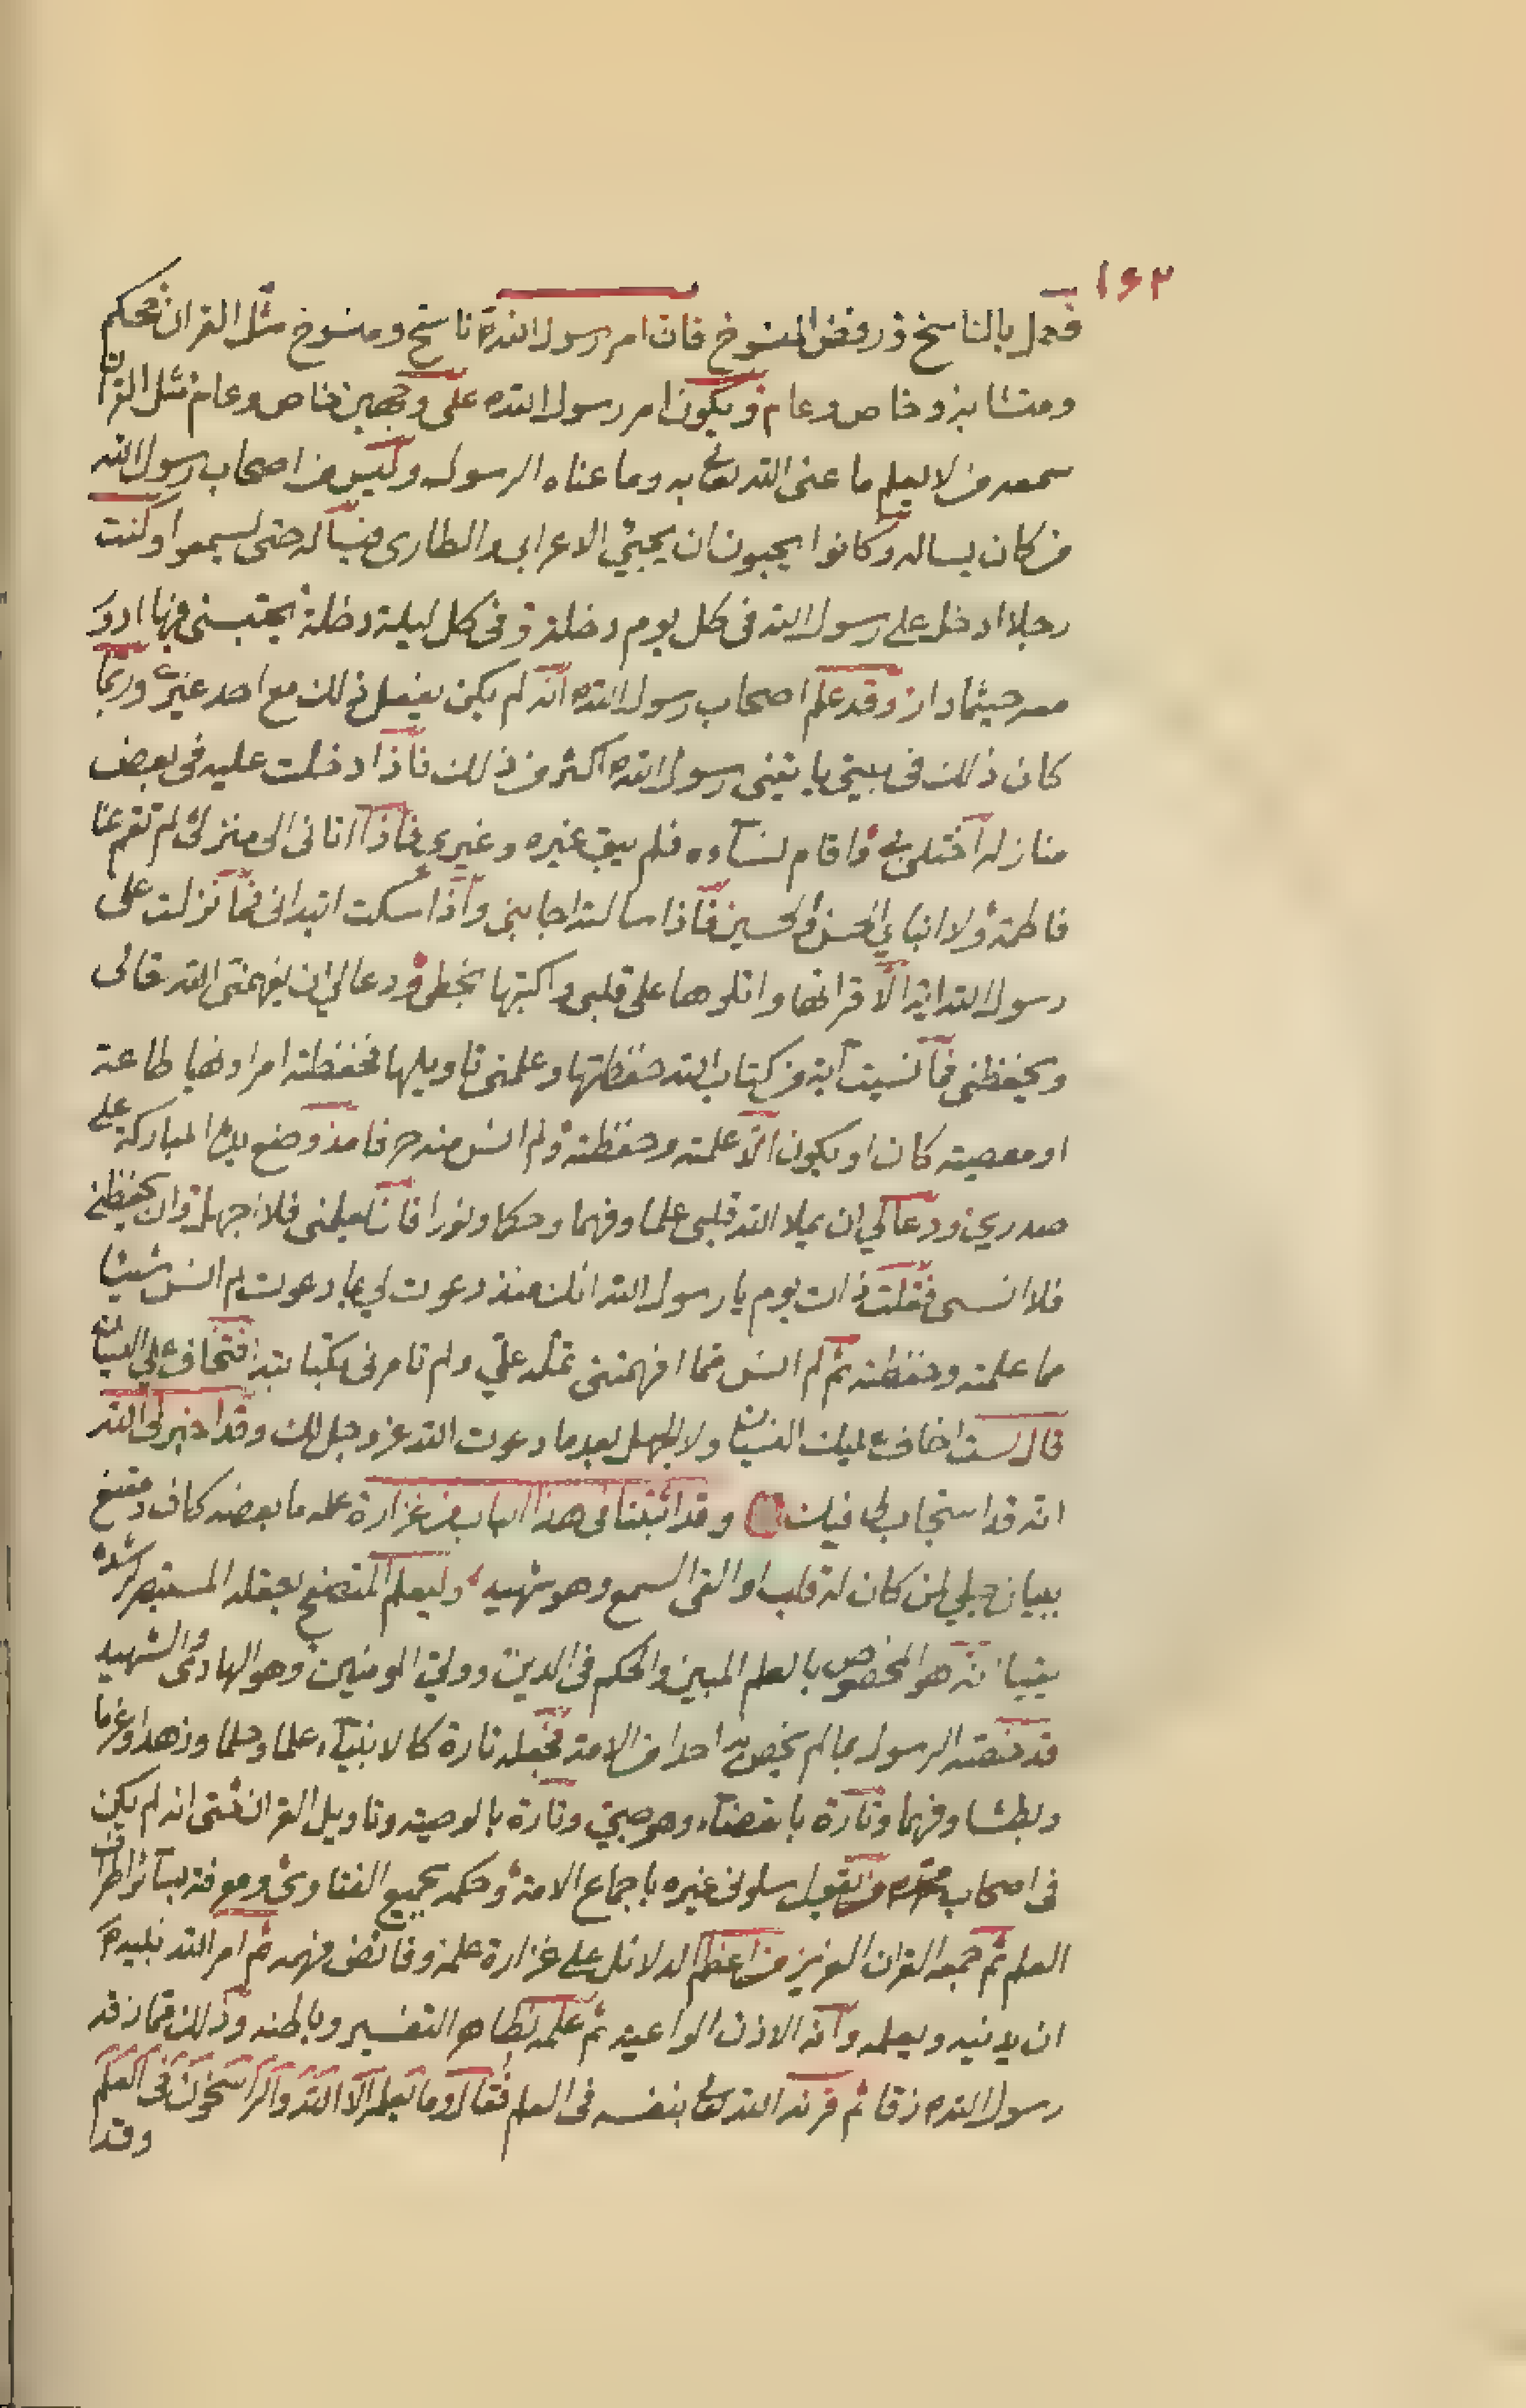 ١٤٣
فعمل بالناسخ ورفض المنسوخ فان امر رسول الله ناسخ ومنسوخ مثل القران محكم
ومتشابه وخاص وعام ويكون امر رسول الله على وجهين خاص وعام مثل القران
سمعه من لا يعلم ما عنى الله تعالى به وما عناه الرسول وليس من اصحاب رسول الله
من كان يساله وكانوا يحبون ان يجيئ الاعرابى والطارى فيساله حتى يسمعوا وكنت
رجلا ادخل على رسول الله فى كل يوم دخلة وفى كل ليلة دخلة يجتبسنى فيها ادور
معه حيثما دار وقد علم اصحاب رسول الله انه لم يكن يفعل ذلك مع احد غيرى وربما
كان ذلك فى بيتى ياتينى رسول الله اكثر من ذلك فاذا دخلت عليه فى بعض
منازله اختلى بى واقام نسآءه فلم يبق غيره وغيرى فاذا اتانى الى منزلى لم تقم عنا
فاطمة ولا ابناي الحسن والحسين فاذا سالته اجابنى واذا سكت ابتدانى فما نزلت على
رسول الله اية الا قرانها واتلوها على قلبى واكتبها بخطى ودعا لي ان يفهمنى الله تعالى
ويحفظنى فما نسيت آية من كتاب الله حفظتها وعلمنى تاويلها فحفظته امرا ونهيا طاعة
او معصية كان او يكون الا علمته وحفظته ولم انس منه حرفا مذ وضع يده المباركة على
صدري ودعا لي ان يملا الله قلبى علما وفهما وحكما ونورا فان يعلمنى فلا اجهل وان يحفظنى
فلا انسى فقلت ذات يوم يا رسول الله انك منذ دعوت لي بما دعوت لم انس شيئا
مما علمته وحفظته ثم لم انس مما افهمتنى تمله علي ولم تامرنى بكتابته افتخاف على النسيان
قال لست اخاف عليك النسيان ولا الجهل بعد ما دعوت الله عز وجل لك وقد اخبرنى الله
انه قد استجاب لى فيك وقد اثبتنا فى هذا الباب من غزارة علمه ما بعضه كاف ومقنع
ببيان جلي لمن كان له قلب او القى السمع وهو شهيد وليعلم المتصفح بعقله المستبصر رشده
يقينا انه هو المخصوص بالعلم المبين والحكم فى الدين وولي المومنين وهو الهادى والشهيد
قد خصه الرسول بما لم يخص به احدا من الامة فجعله تارة كالانبيآء علما وحلما وزهدا وعزما
وبطشا وفهما وتارة بالقضآء وهو صبي وتارة بالوصية وتاويل القران حتى انه لم يكن
فى اصحاب محمد من يقول سلونى غيره باجماع الامة وحكمه بجميع الفتاوى ومعرفته بسآئر اطراف
العلم ثم جمعه القران العزيز من اعظم الدلائل على غزارة علمه وفائض فهمه ثم امر الله نبيه
ان يدنيه ويعلمه وانه الاذن الواعية ثم علمه بظاهر التفسير وباطنه وذلك مما زقه
رسول الله زقا ثم قرنه الله تعالى بنفسه فى العلم فقال وما يعلمه الا الله والراسخون فى العلم
وقد